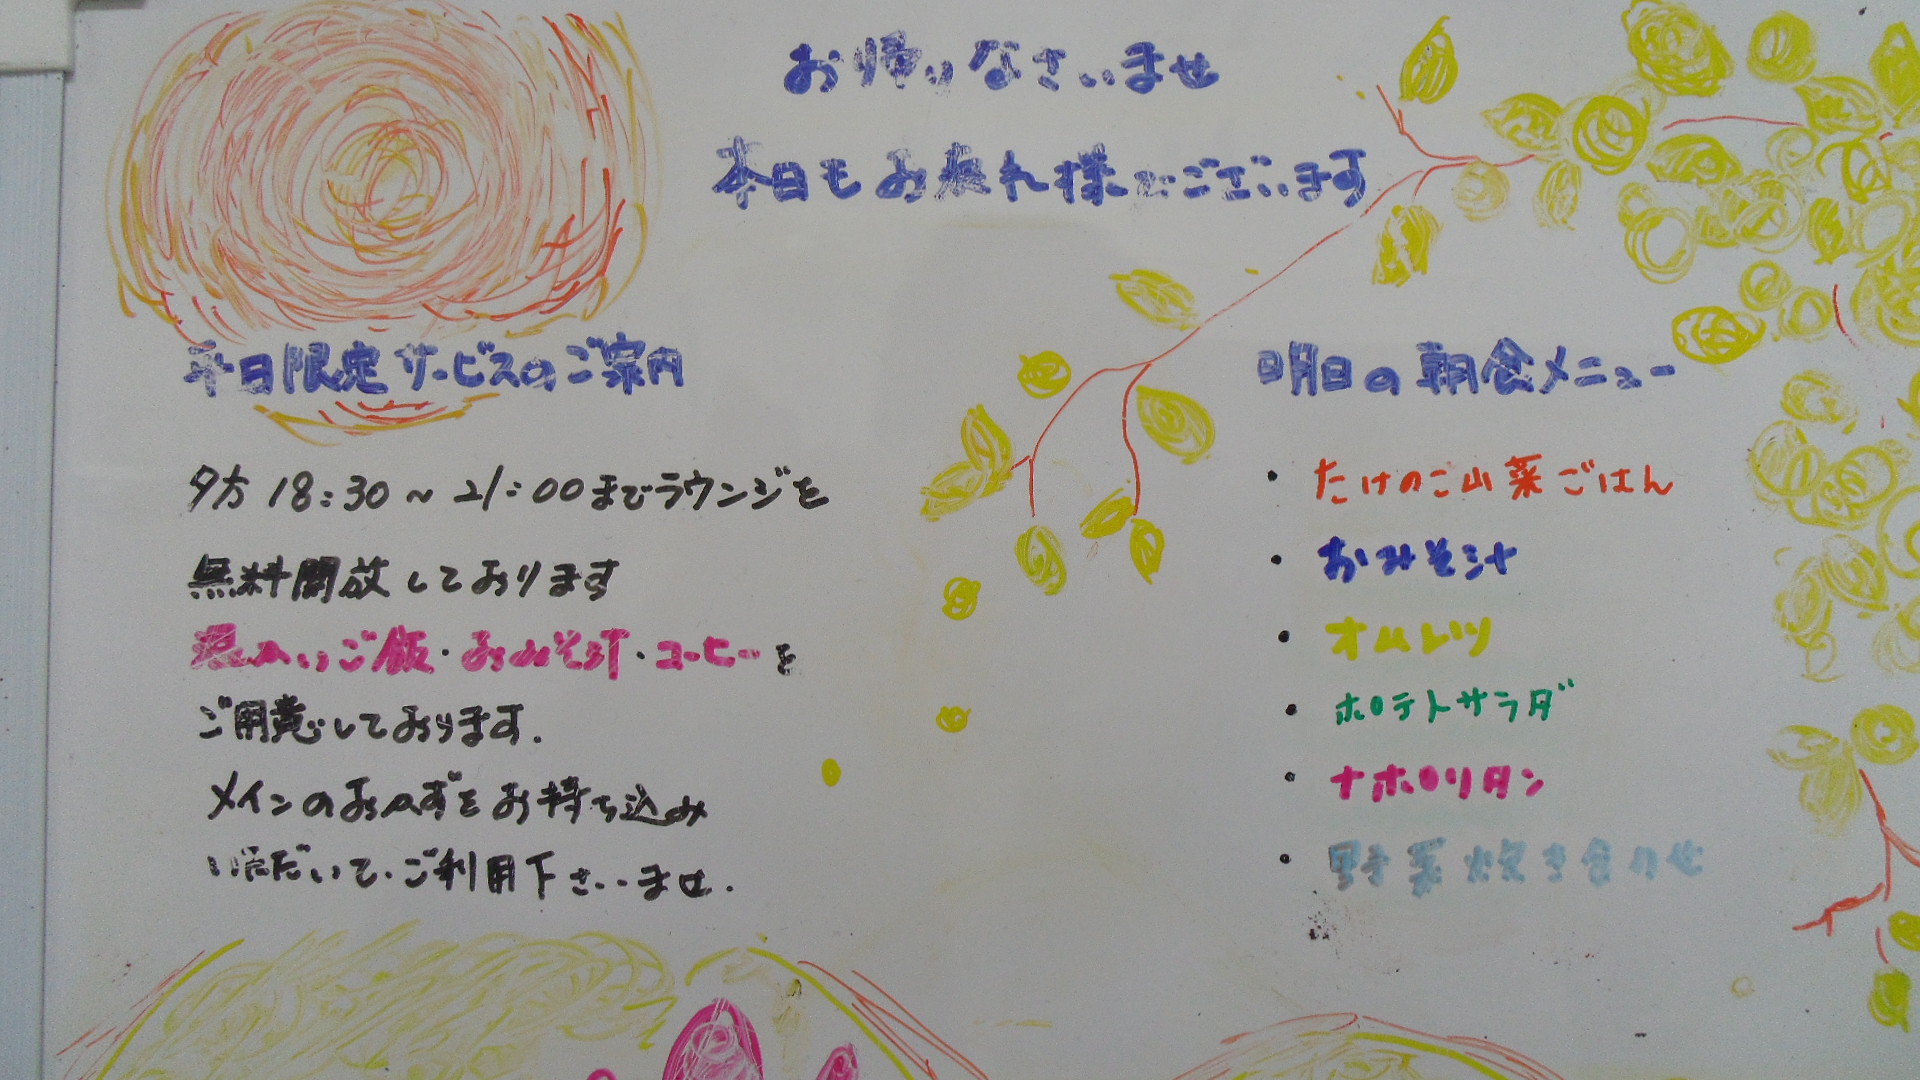 お帰りなさいませ
本日もお疲れ様でございます
平日限定サービスのご案内
夕方18:30～21:00までラウンジを
無料開放しております
温かいご飯・おみそ汁・コーヒーを
ご用意しております.
メインのおかずをお持ち込み
いただいて、ご利用下さいませ.
明日の朝食メニュー
・たけのこ山菜ごはん
・おみそ汁
・オムレツ
・ポテトサラダ
・ナポリタン
・野菜炊き合わせ